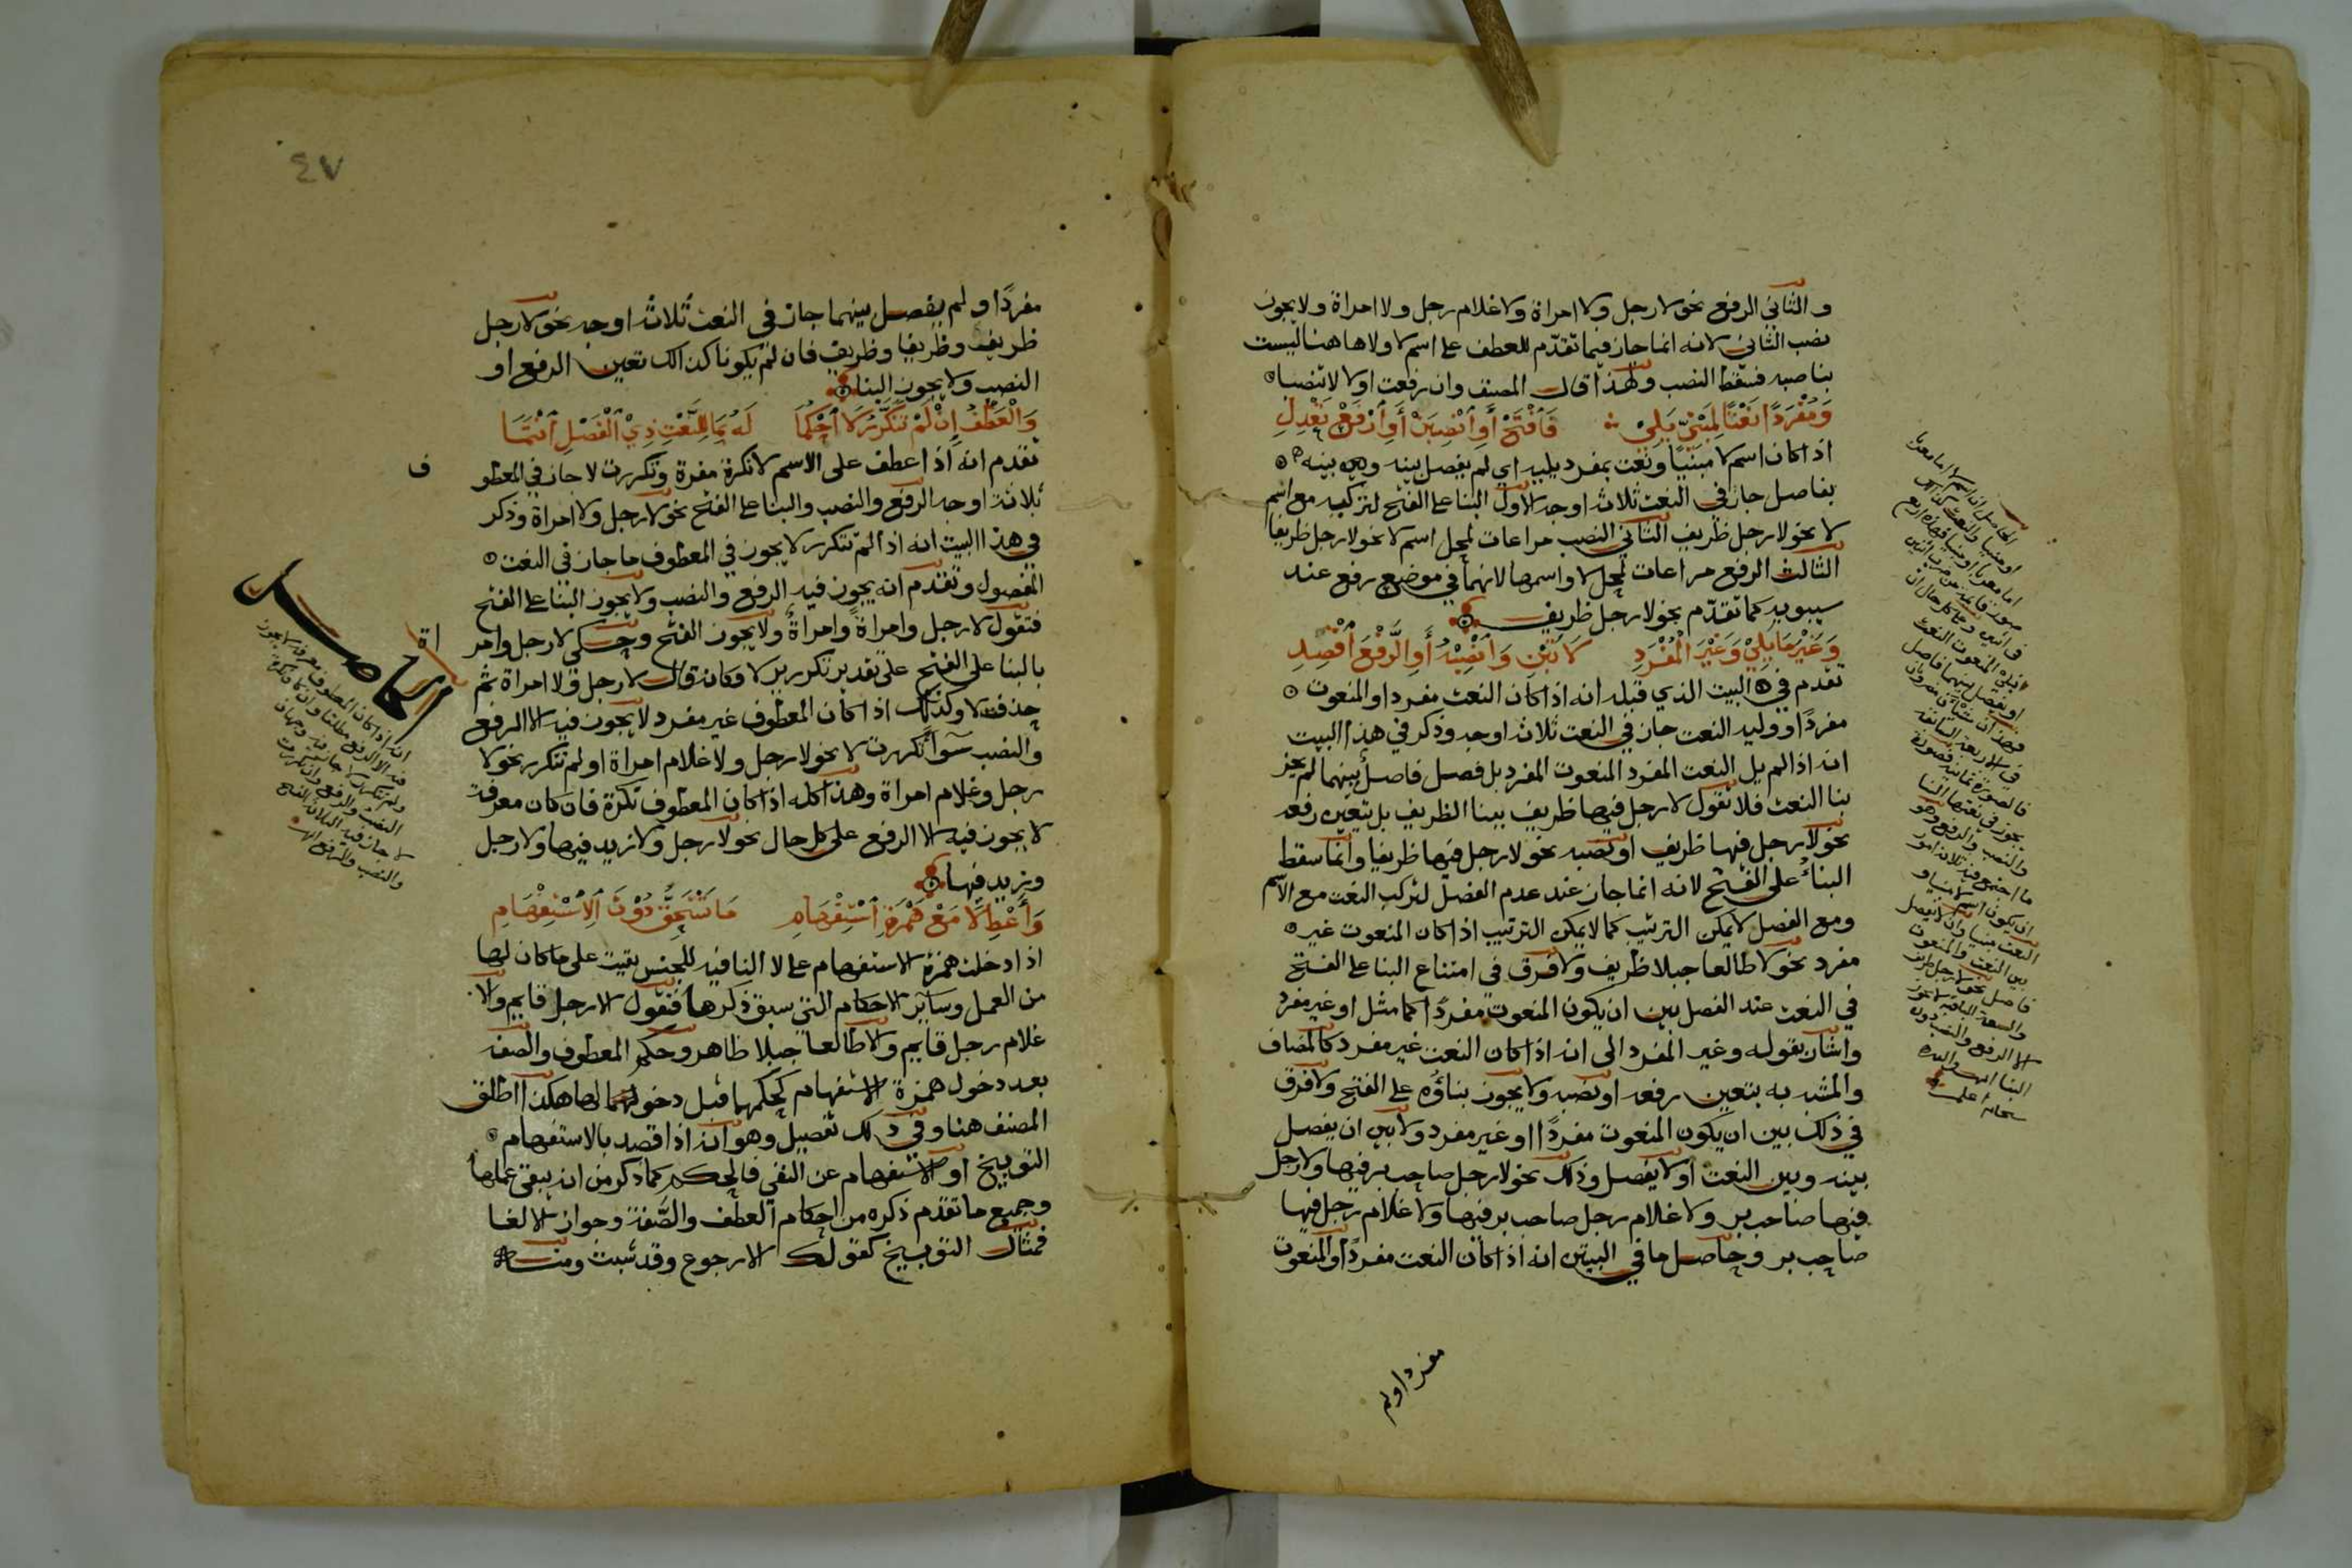 والثاني الرفع نحو لا رجل ولا امراة ولا غلام رجل ولا امراة ولا يجوز
نصب الثاني لانه انما جاز فيما تقدّم للعطف على اسم لا ولا هاهنا ليست
بناصبه فسقط النصب ولهذا قال المصنف وان رفعت اولا لا تنصبا
وَمُفْرَدًا نَعْتًا لِمَبْنِيٍّ يَلِي فَافْتَحْ أَوِ انْصِبَنْ أَوِ ارْفَعْ تَعْدِلِ
اذا كان اسم لا مبنيا ونعت بمفرد يليه اي لم يفصل بينه وبينه
بفاصل جاز في النعت ثلاثة اوجه الاول البنا على الفتح لتركبه مع اسم
لا نحو لا رجل ظريف الثاني النصب مراعات لمحل اسم لا نحو لا رجل ظريفا
الثالث الرفع مراعات لمحل لا واسمها لانهما في موضع رفع عند
سيبويه كما تقدّم نحو لا رجل ظريف
وَغَيْرَ مَا يَلِيْ وَغَيْرَ الْمُفْرَدِ لَا تَبْنِ وَانْصِبْهُ أَوِ الرَّفْعَ اقْصِدِ
تقدم في البيت الذي قبله انه اذا كان النعت مفردا والمنعوت
مفردًا ووليه النعت جاز في النعت ثلاث اوجه وذكر في هذا البيت
انه اذا لم يل النعت المفرد المنعوت المفرد بل فصل فاصل بينهما لم يجز
بنا النعت فلا تقول لا رجل فيها ظريف ببنا الظريف بل يتعين رفعه
نحو لا رجل فيها ظريف او نصبه نحو لا رجل فيها ظريفا وانما سقط
البناء على الفتح لانه انما جاز عند عدم الفصل لتركب النعت مع الاسم
ومع الفصل لا يمكن التركيب كما لا يمكن التركيب اذا كان المنعوت غير
مفرد نحو لا طالعا جبلا ظريف ولا فرق في امتناع البنا على الفتح
في النعت عند الفصل بين ان يكون المنعوت مفردًا كما مثل او غير مفرد
واشار بقوله وغير المفرد الى انه اذا كان النعت غير مفرد كالمضاف
والمشبه به يتعين رفعه او نصبه ولا يجوز بناؤه على الفتح ولا فرق
في ذلك بين ان يكون المنعوت مفردًا او غير مفرد ولا بين ان يفصل
بينه وبين النعت او لا يفصل وذلك نحو لا رجل صاحب بر فيها ولا رجل
فيها صاحب بر ولا غلام رجل صاحب بر فيها ولا غلام رجل فيها
صاحب بر وحاصل ما في البيتين انه اذا كان النعت مفردًا والمنعوت
مفردا ولم
الحاصل ان اسم لا اما معربا
او مبنيا والنعت كذلك
اما معربا او مبنيا فهذه اربع
او يفصل بينهما فاصل
في الاربعة السابقة
يجوز في نعتها البنا
والنصب والرفع وهو
ما اجتمع فيه ثلاث امور
ان يكون اسم لا مبنيا و
النعت مبنيا وان لا يفصل
بين النعت والمنعوت
فاصل نحو لا رجل ظريف
والسبعة الباقية لا يجوز
الا الرفع والنصب دون
البنا انتهى والله
سبحانه اعلم
٤٧
مفردًا ولم يفصل بينهما جاز في النعت ثلاث اوجه نحو لا رجل
ظريف وظريفا وظريف فان لم يكونا كذالك تعين الرفع او
النصب ولا يجوز البنا
وَالْعَطْفُ إِنْ لَمْ تَتَكَرَّرْ لَا احْكُمَا لَهُ بِمَا لِلنَّعْتِ ذِيْ الْفَصْلِ انْتَمَا
تقدم انه اذا عطف على الاسم لا نكرة مفردة وتكررت لا جاز في المعطو
ف
ثلاثة اوجه الرفع والنصب والبنا على الفتح نحو لا رجل ولا امراة وذكر
في هذا البيت انه اذا لم تتكرر لا يجوز في المعطوف ما جاز في النعت
المفصول وتقدم انه يجوز فيه الرفع والنصب ولا يجوز البنا على الفتح
فتقول لا رجل وامراةً وامراةٌ ولا يجوز الفتح وحكي لا رجل وامر
اة
بالبنا على الفتح على تقدير تكرير لا وكانه قال لا رجل ولا امراة ثم
حذفت لا وكذلك اذا كان المعطوف غير مفرد لا يجوز فيه الا الرفع
والنصب سوآ تكررت لا نحو لا رجل ولا غلام امراة او لم تتكرر نحو لا
رجل وغلام امراة وهذا كله اذا كان المعطوف نكرة فان كان معرفة
لا يجوز فيه الا الرفع على كل حال نحو لا رجل ولا زيد فيها ولا رجل
وزيد فيها
وَأَعْطِ لَا مَعْ هَمْزَةِ اسْتِفْهَامِ مَا تَسْتَحِقُّ دُوْنَ الِاسْتِفْهَامِ
اذا دخلت همزة الاستفهام على لا النافيه للجنس بقيت على ما كان لها
من العمل وساير الاحكام التي سبق ذكرها فتقول الا رجل قايم والا
غلام رجل قايم ولا طالعا جبلا ظاهر وحكم المعطوف والصفة
بعد دخول همزة الاستفهام كحكمها قبل دخولهما لها هكذا اطلق
المصنف هنا وفي ذلك تفصيل وهو انه اذا قصد بالاستفهام
التوبيخ او الاستفهام عن النفي فالحكم كما ذكر من انه يبقى عملها
وجميع ما تقدم ذكره من احكام العطف والصّفة وجواز الالغا
فمثال التوبيخ كقولك الا رجوع وقد شبت ومنه
الحاصل
انه اذا كان المعطوف معرفة لا يجوز
فيه الا الرفع مطلقا وان كان نكرة
ولم تتكرر لا جاز فيه وجهان
النصب والرفع وان تكررت
لا جاز فيه الثلاثة الفتح
والنصب والرفع انتهى